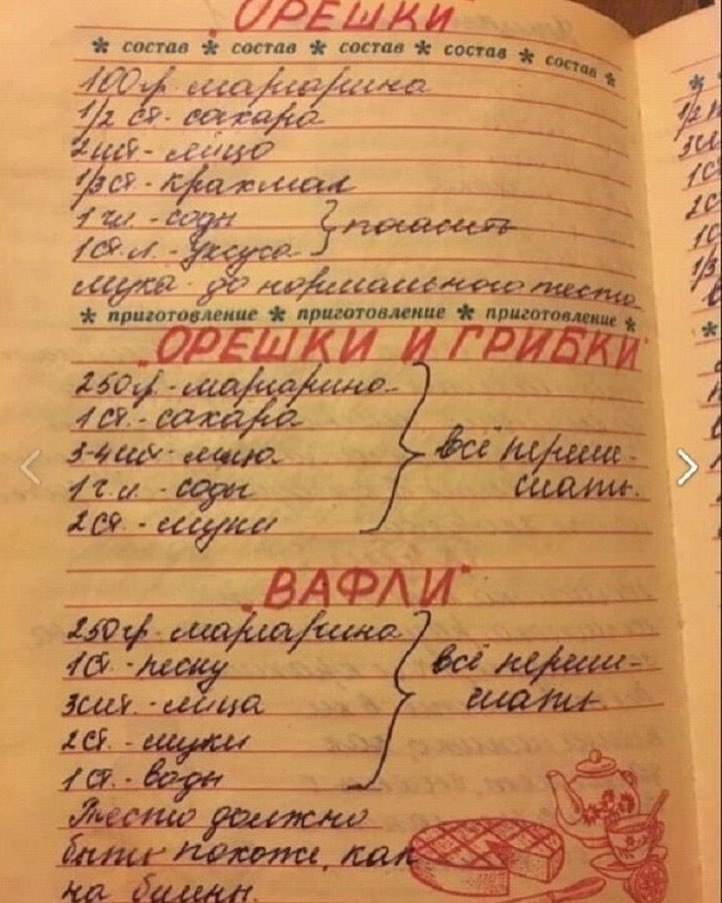 "ОРЕШКИ"
* состав * состав * состав * состав * состав *
100гр. маргарина
1/2 ст. - сахара
2шт. - яйцо
1/3 ст. - крахмал
1 ч.л. - соды } погасить
1 ст.л. - уксуса
мука - до нормального теста
* приготовление * приготовление * приготовление *
"ОРЕШКИ И ГРИБКИ"
250гр. - маргарина
1 ст. - сахара
3-4 шт. - яйца } всё переме-
1 ч.л. - соды шать.
2 ст. - муки
"ВАФЛИ"
250гр. маргарина
1 ст. - песку } всё переме-
3шт. - яйца шать.
2 ст. - муки
1 ст. - воды
Тесто должно
быть похоже, как
на блины.